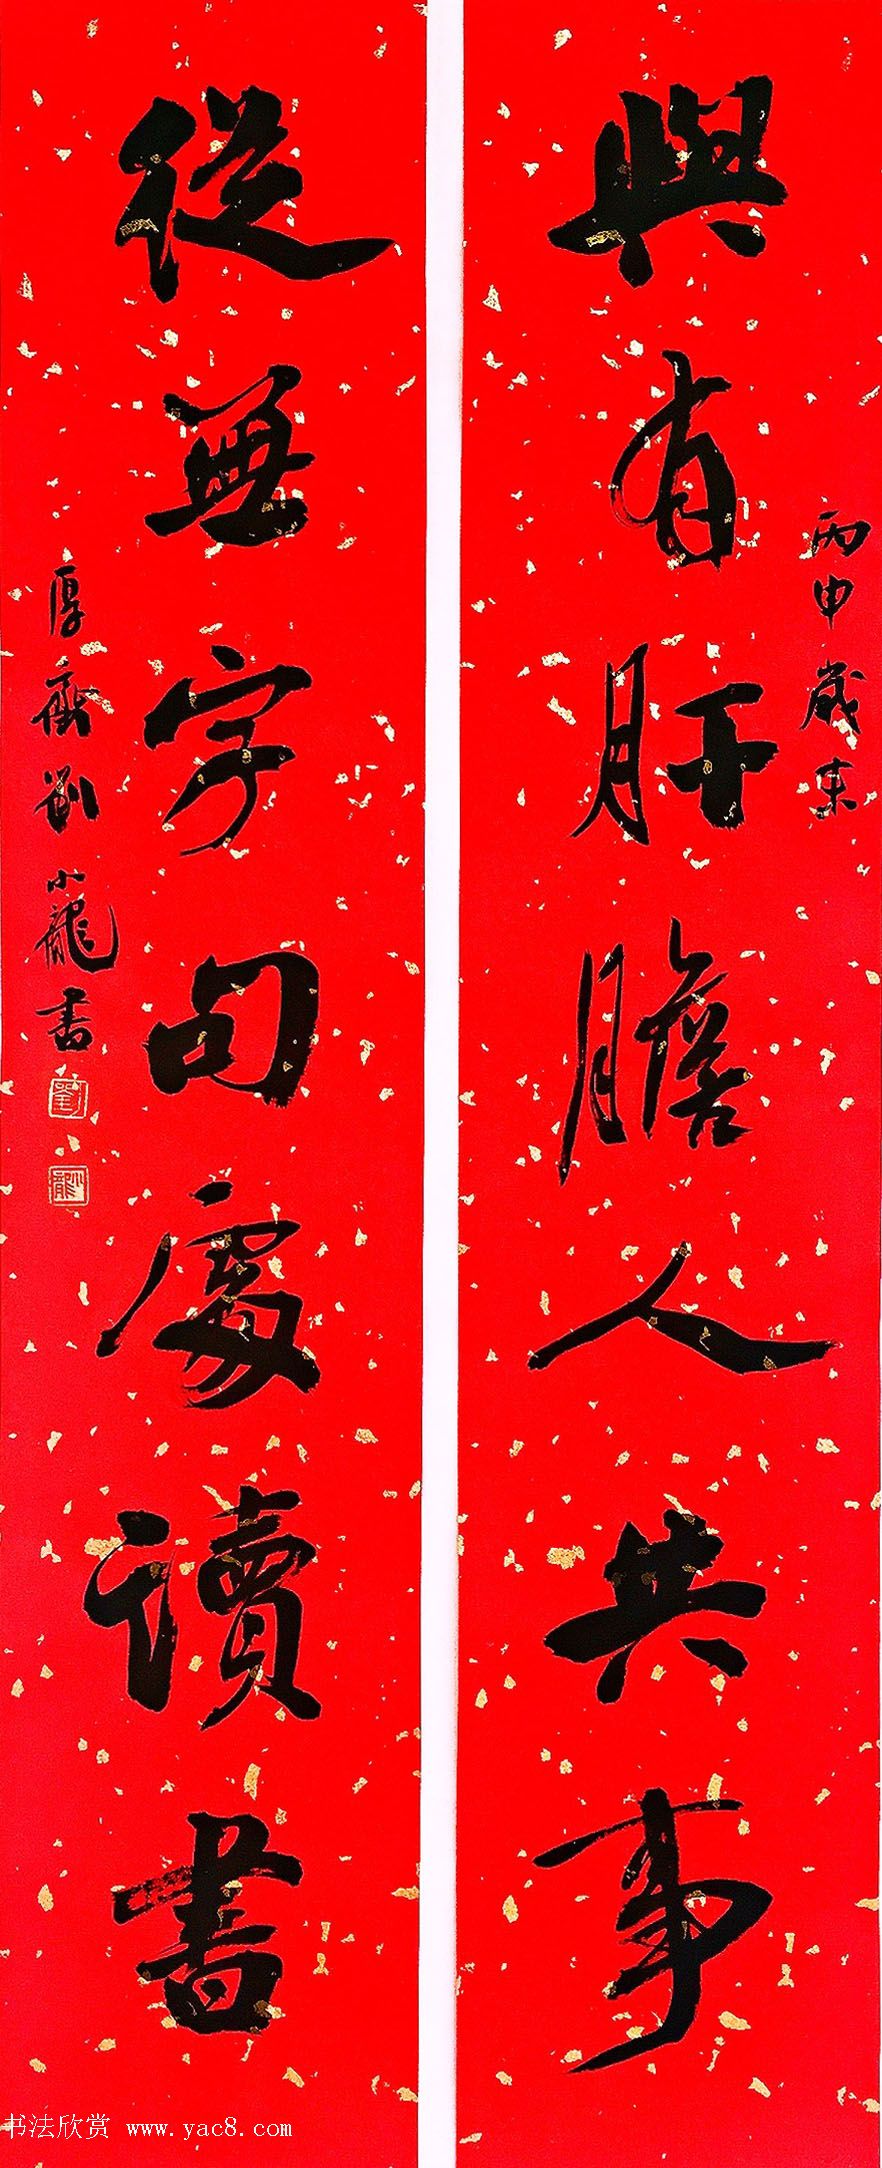 丙申歲末
與有肝膽人共事
從無字句處讀書
厚齋劉小龍書
书法欣赏 www.yac8.com